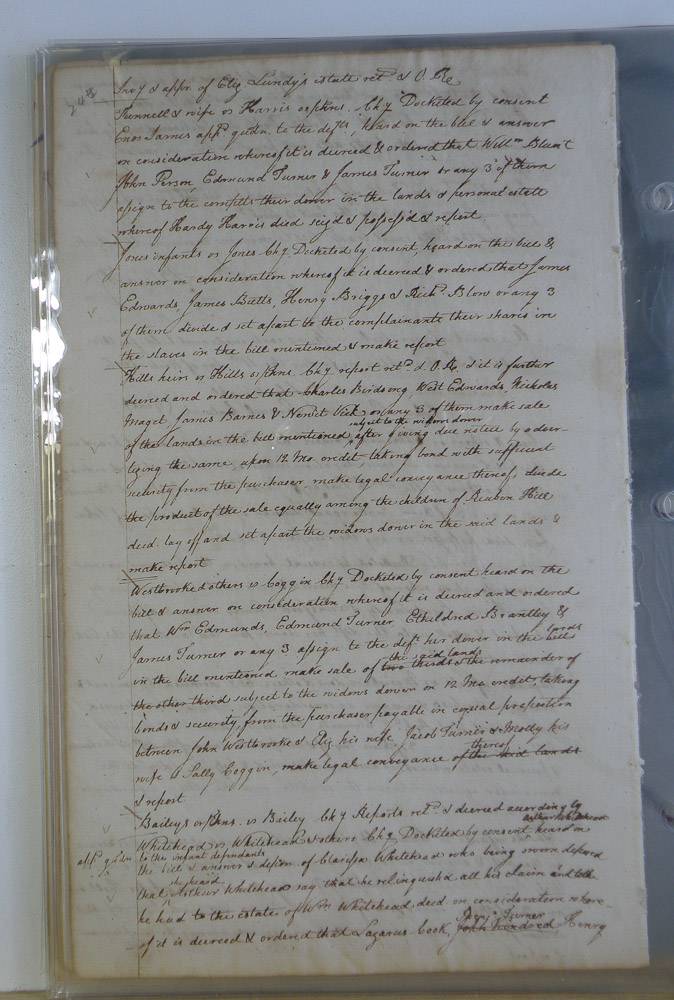 Inv'y & appr. of Eliz Lundy's estate ret'd & O. Re
Tunnell & wife vs Harris orphns. Ch'y Docketed by consent
Enos James app'd gudn. to the defts, heard on the bill & answer
on consideration whereof it is decreed & ordered that Will'm Blunt
John Person, Edmund Turner & James Turner or any 3 of them
assign to the complts their dower in the lands & personal estate
whereof Hardy Harris died seiz'd & possess'd & report
Jones infants vs Jones Ch'y Docketed by consent, heard on the bill &
answer on consideration whereof it is decreed & ordered that James
Edwards, James Butts, Henry Briggs & Rich'd Blow or any 3
of them divide & set apart to the complainants their shares in
the slaves in the bill mentioned & make report
Hills heirs vs Hills orphns. Ch'y report ret'd & O. R. & it is further
decreed and ordered that Charles Birdsong West Edwards, Nicholas
Maget James Barnes & Newit Vick or any 3 of them make sale
subject to the widows dower
of the lands in the bill mentioned, after giving due notice by adver-
tizing the same, upon 12 Mo. credit taking bond with sufficient
security from the purchaser make legal conveyance thereof, divide
the product of the sale equally among the children of Reuben Hill
decd. lay off and set apart the widows dower in the said lands &
make report
Westbrooke & others vs Coggin Ch'y Docketed by consent heard on the
bill & answer on consideration whereof it is decreed and ordered
that Wm Edmunds, Edmund Turner Etheldred Brantley &
James Turner or any 3 assign to the deft. her dower in the lands
in the bill mentioned make sale of the said lands two thirds & the remainder of
the other third subject to the widows dower on 12 Mo credit, taking
bonds & security from the purchaser payable in equal proportion
between John Westbrooke & Eliz his wife, Jacob Turner & Molly his
wife & Sally Coggin, make legal conveyance of thereof the said lands
& report
Baileys orphns. vs Bailey Ch'y Reports ret'd & decreed according ly
Whitehead vs Whitehead & others Ch'y Docketed by consent heard on
app'd gudn to the infant defendants
the bill & answer & depson. of Clarissa Whitehead who being sworn deposed
that she heard Arthur Whitehead say that he relinquish'd all his claim
he had to the estate of Wm Whitehead decd on consideration where-
of it is decreed & ordered that Lazarus Cook, Benj'a Turner John Kindred Henry